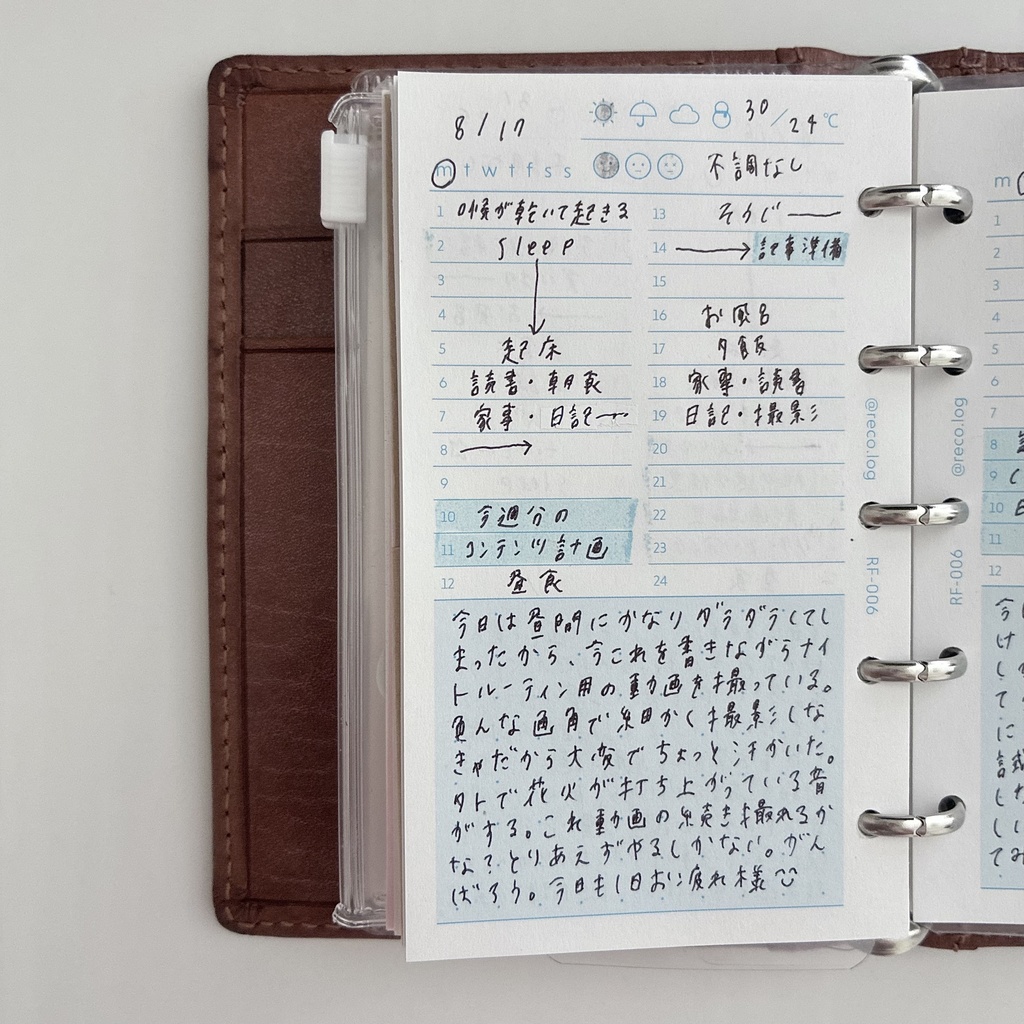 8/17
30/24℃
m t w t f s s 不調なし
1 喉が乾いて起きる
2 sleep
3
4
5 起床
6 読書・朝食
7 家事・日記
8
9
10 今週分の
11 コンテンツ計画
12 昼食
13 そうじ
14 記事準備
15
16 お風呂
17 夕飯
18 家事・読書
19 日記・撮影
20
21
22
23
24
今日は昼間にかなりダラダラしてし
まったから、今これを書きながらナイ
トルーティン用の動画を撮っている。
色んな画角で細かく撮影しな
きゃだから大変でちょっと汗かいた。
外で花火が打ち上がっている音
がする。これ動画の続き撮れるか
な?とりあえずやるしかない。がん
ばろう。今日も1日お疲れ様
@reco.log
RF-006
@reco.log
RF-006
m
1
2
3
4
5
6
7
8
9
10
11
12
今
け
し
て
に
し
し
てみ